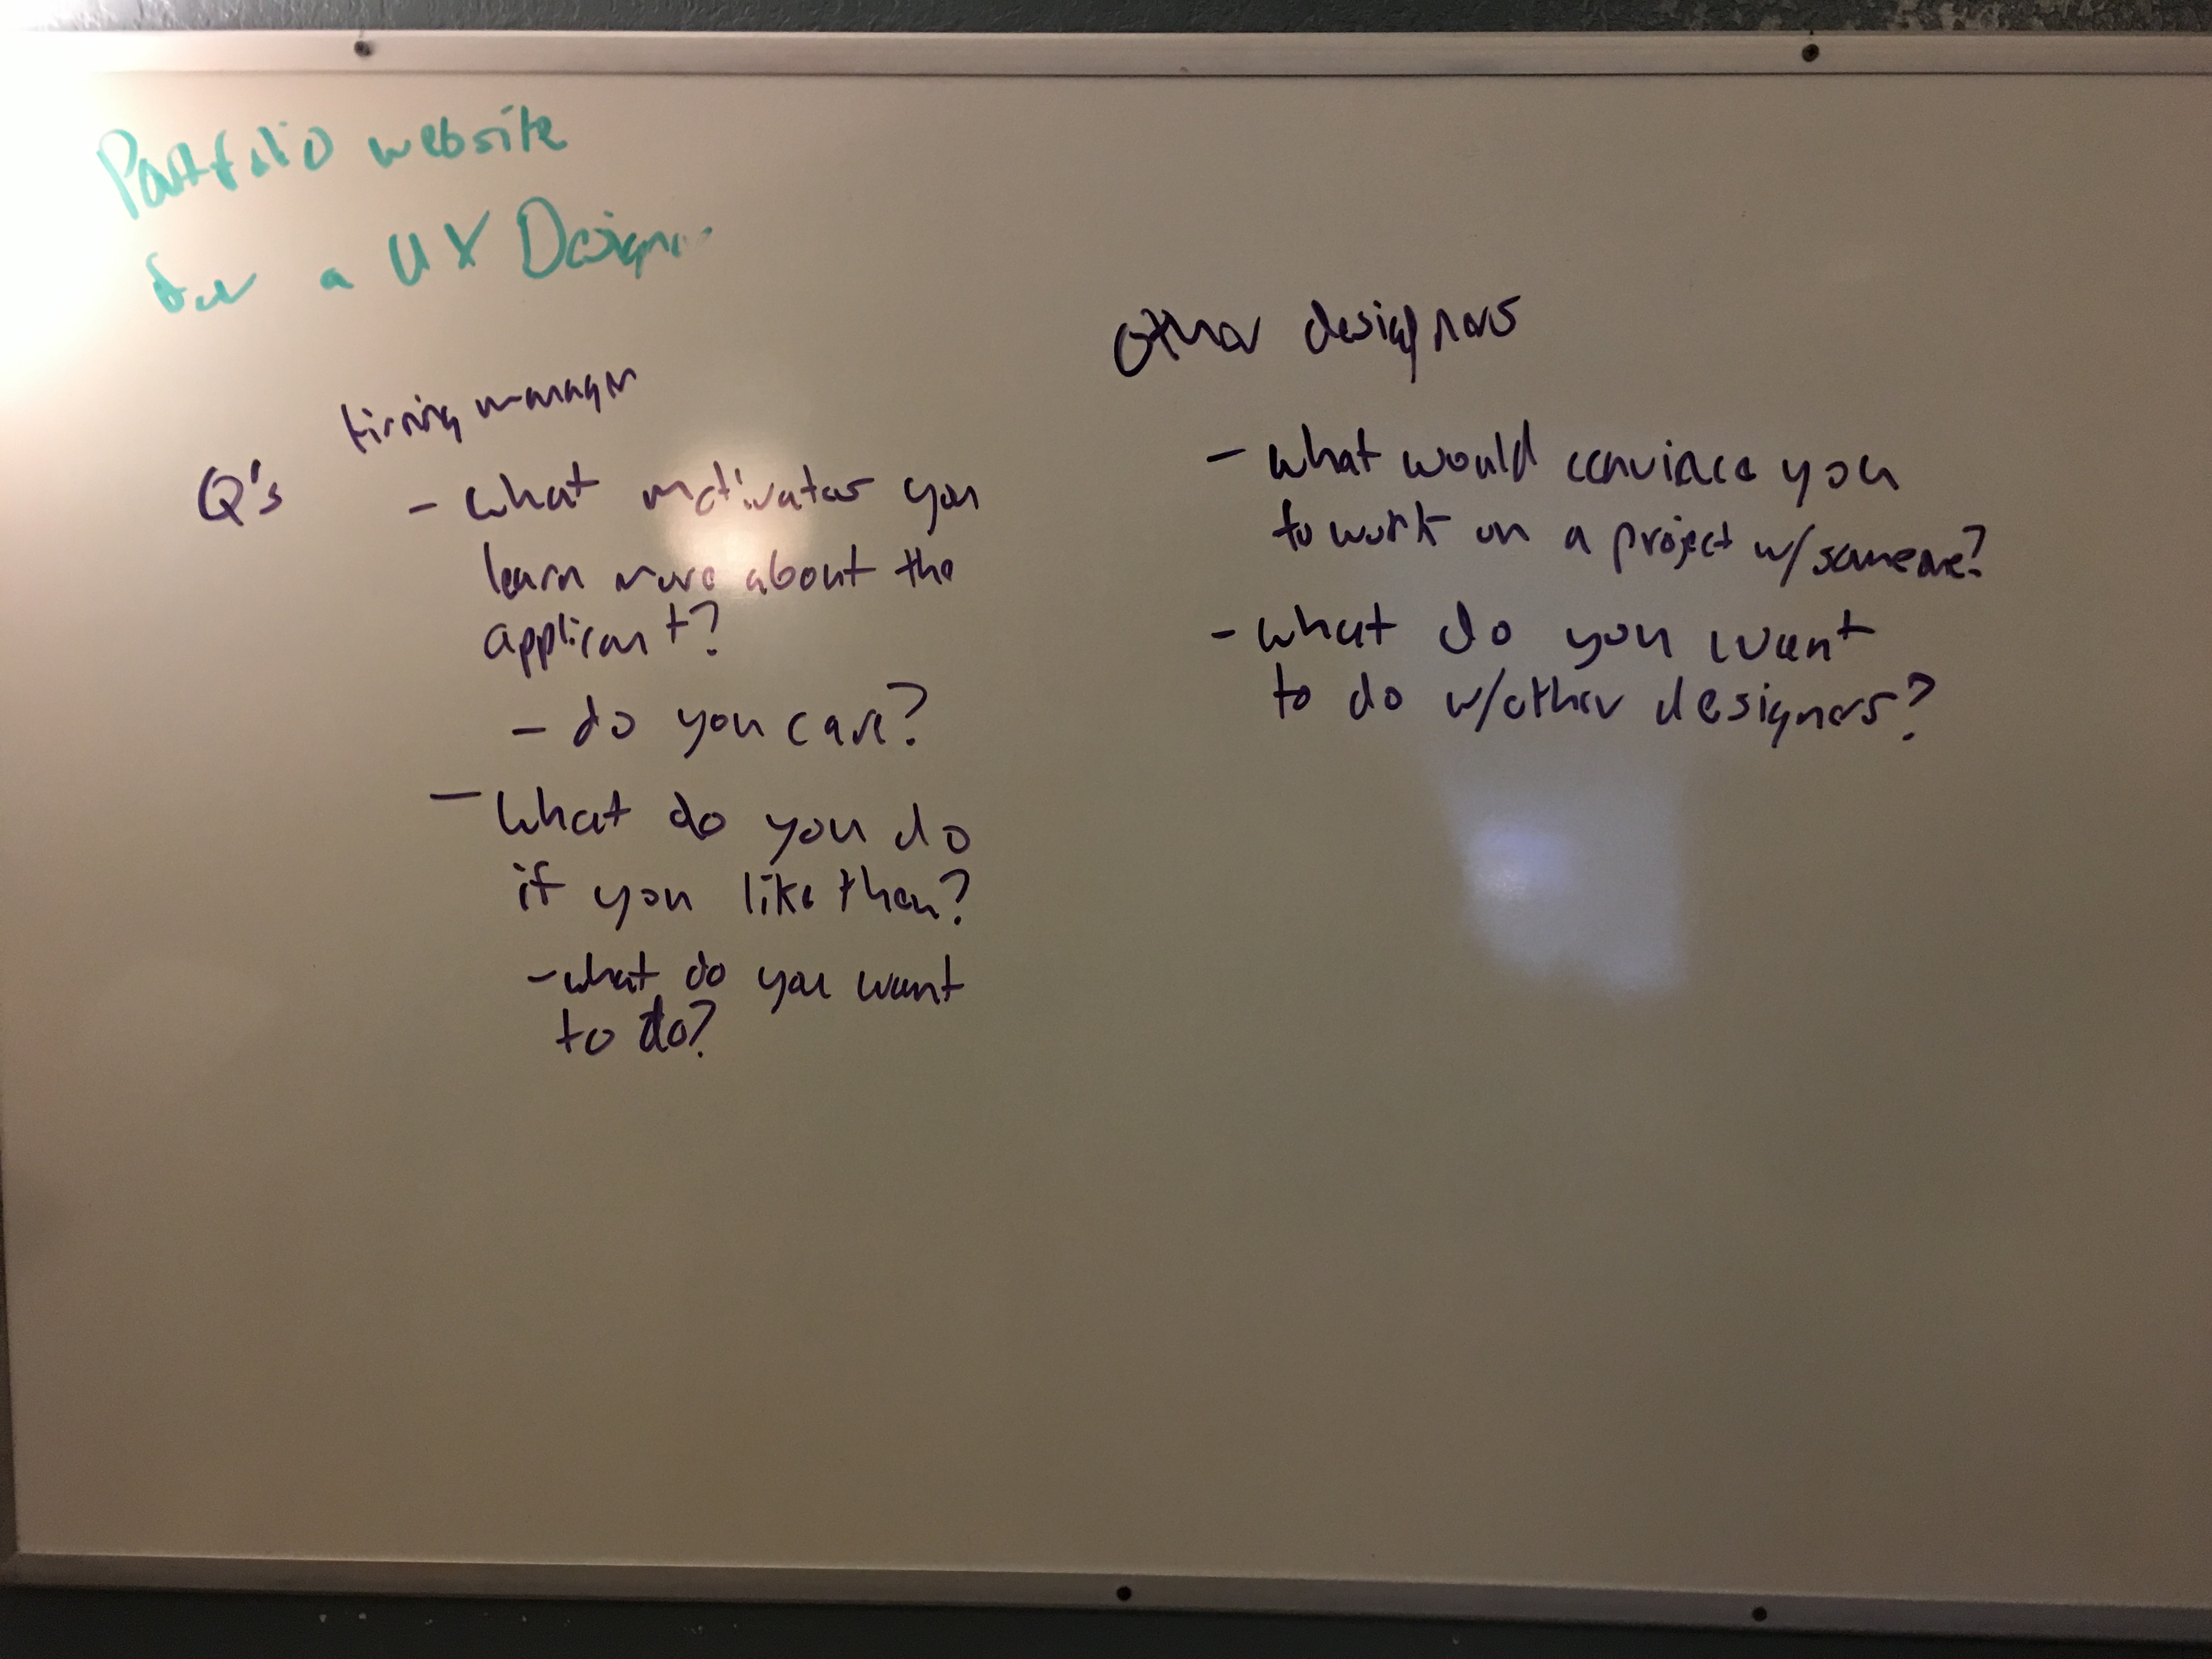 Portfolio website
for a UX Designer
Hiring manager
Q's
- what motivates you
learn more about the
applicant?
- do you care?
- What do you do
if you like them?
- what do you want
to do?
Other designers
- what would convince you
to work on a project w/someone?
- what do you want
to do w/other designers?